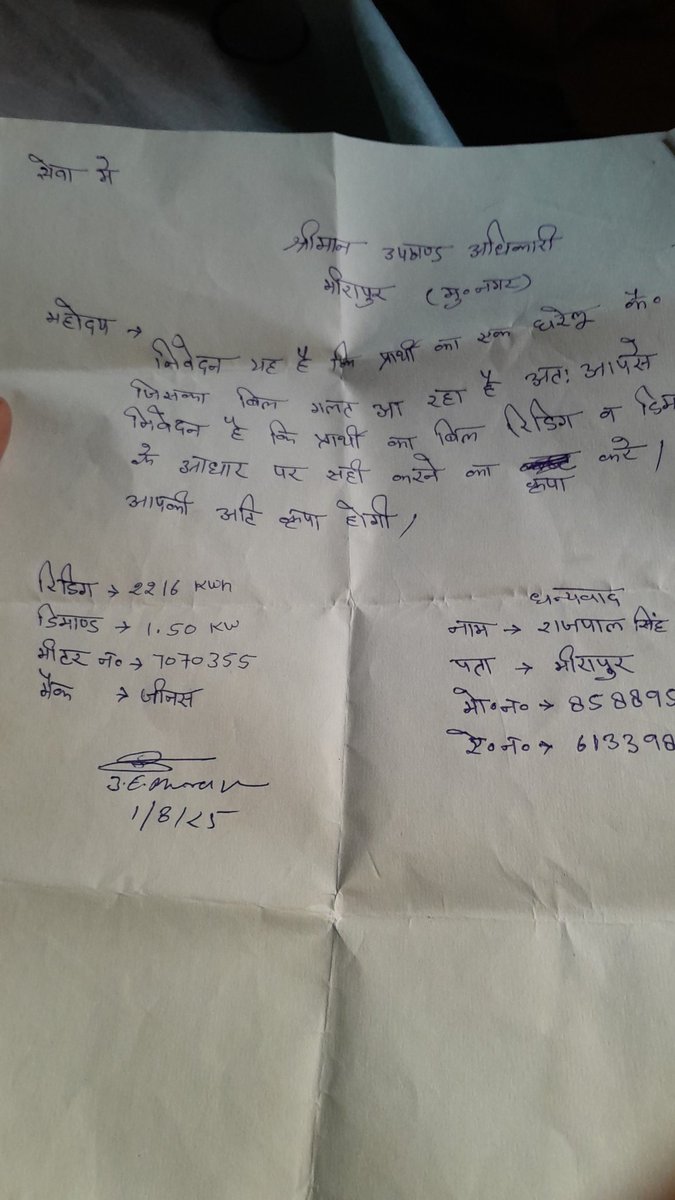 सेवा मे
श्रीमान उपखण्ड अधिकारी
मीरापुर (मु॰नगर)
महोदय →
निवेदन यह है कि प्रार्थी का एक घरेलू कै॰
जिसका बिल गलत आ रहा है अतः आपसे
निवेदन है कि प्रार्थी का बिल रिडिंग व डिमा
के आधार पर सही करने का कृपा करे।
आपकी अति कृपा होगी।
धन्यवाद
रिडिंग → 2216 KWh
डिमाण्ड → 1.50 KW
मीटर न॰ → 7070355
मैक → जीनस
नाम → राजपाल सिंह
पता → मीरापुर
मो॰न॰ → 858895
ऐ॰न॰ → 613398
J.E.
1/8/25